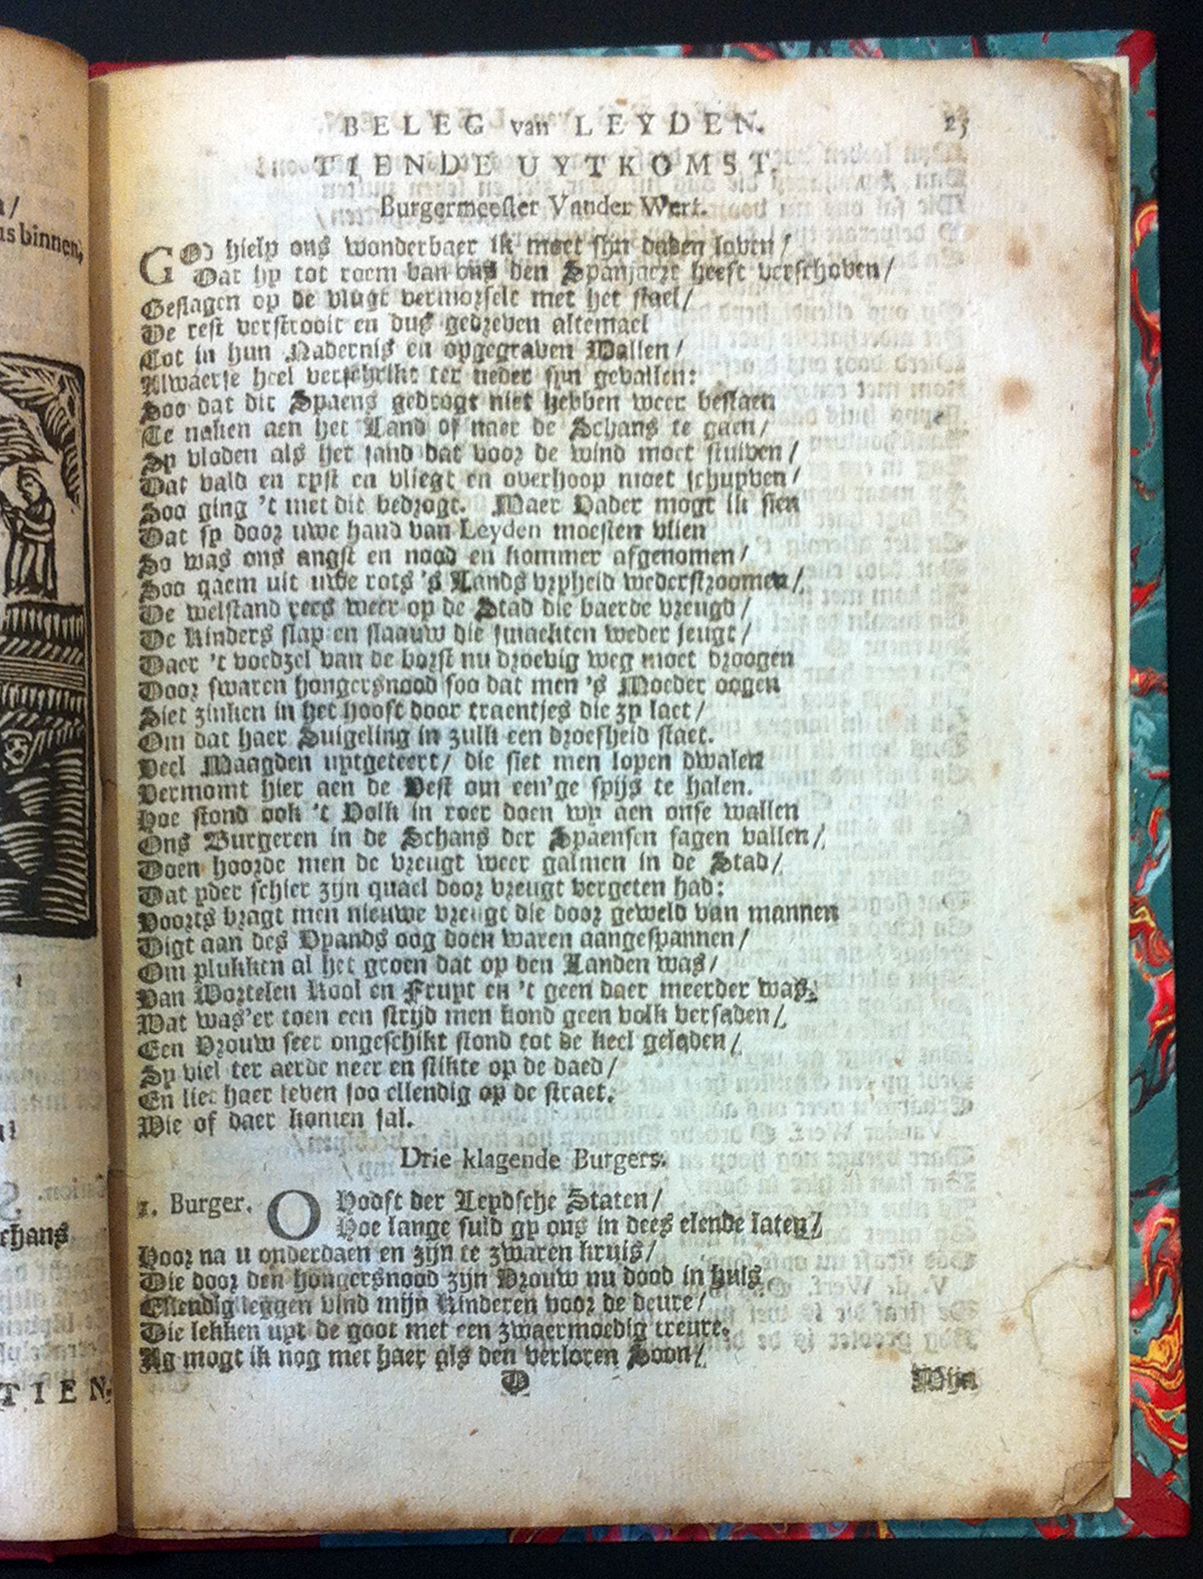 BELEG van LEYDEN. 25
TIENDE UYTKOMST.
Burgermeester Vander Werf.
GOd hielp ons wonderbaer ik moet sijn daden loven /
Dat hy tot roem van ons den Spanjaert heeft verschoven /
Geslagen op de vlugt vermorselt met het stael /
De rest verstrooit en dus gedreven altemael
Tot in hun Nadernis en opgegraven Wallen /
Alwaerse heel verschrikt ter neder sijn gevallen:
Soo dat dit Spaens gedrogt niet hebben weer bestaen
Te naken aen het Land of naer de Schans te gaen /
Sy vloden als het sand dat voor de wind moet stuiven /
Dat vald en ryst en vliegt en overhoop moet schuyven /
Soo ging 't met dit bedrogt. Maer Vader mogt ik sien
Dat sy door uwe hand van Leyden moesten vlien
So was ons angst en nood en kommer afgenomen /
Soo qaem uit uwe rots 's Lands vryheid wederstroomen /
De welstand rees weer op de Stad die baerde vreugd /
De kinders slap en slaauw die smachten weder jeugt /
Daer 't voedzel van de borst nu droevig weg moet droogen
Door swaren hongersnood soo dat men 's Moeder oogen
Siet zinken in het hooft door traentjes die zy laet /
Om dat haer Suigeling in zulk een droefheid staet.
Veel Maagden uytgeteert / die siet men lopen dwalen
Vermomt hier aen de Vest om een'ge spijs te halen.
Hoe stond ook 't Volk in roer doen wy aen onse wallen
Ons Burgeren in de Schans der Spaensen sagen vallen /
Doen hoorde men de vreugt weer galmen in de Stad /
Dat yder schier zijn quael door vreugt vergeten had:
Voorts bragt men nieuwe vreugt die door geweld van mannen
Digt aan des Vyands oog doen waren aangespannen /
Om plukken al het groen dat op den Landen was /
Van Wortelen Kool en Fruyt en 't geen daer meerder was;
Wat was'er toen een strijd men kond geen volk versaden /
Een Vrouw seer ongeschikt stond tot de keel geladen /
Sy viel ter aerde neer en stikte op de daed /
En liet haer leven soo ellendig op de straet.
Wie of daer komen sal.
Drie klagende Burgers.
1. Burger. O Hooft der Leydsche Staten /
Hoe lange suld gy ons in dees elende laten /
Hoor na u onderdaen en zijn te zwaren kruis /
Die door den hongersnood zijn Vrouw nu dood in huis
Ellendig leggen vind mijn Kinderen voor de deure /
Die lekken uyt de goot met een zwaermoedig treure.
Ag mogt ik nog met haer als den verloren Soon /
D
Mijn
is binnen,
chans
TIEN-